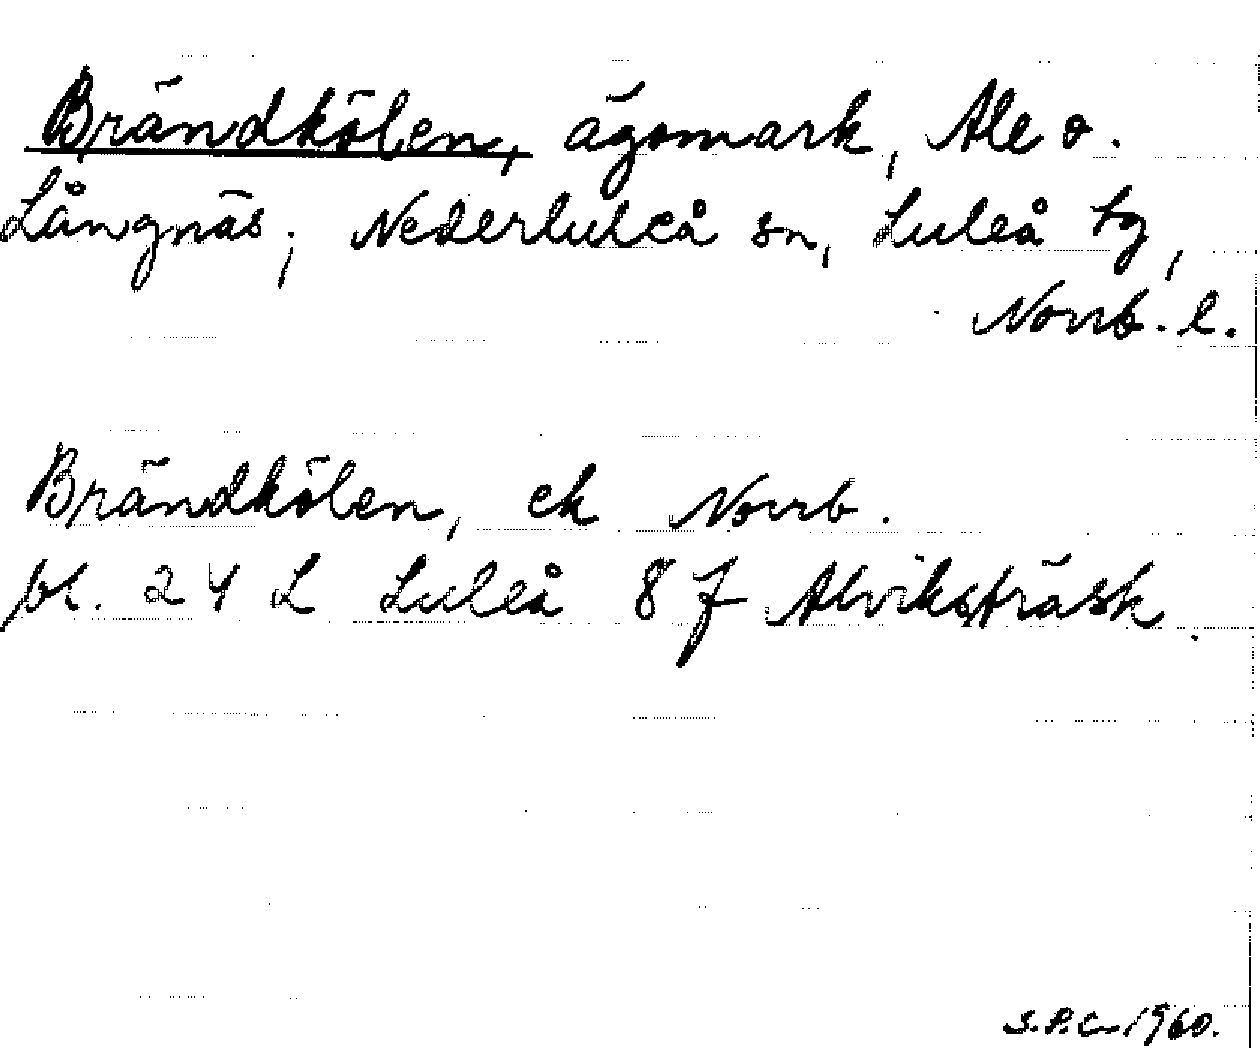 Brändkölen, ägomark, Ale o.
Långnäs, Nederluleå sn, Luleå tg,
Norrb. l.
Brändkölen, ek Norrb.
bl. 24 L Luleå 8 f Alviksträsk.
S.P.C. 1960.